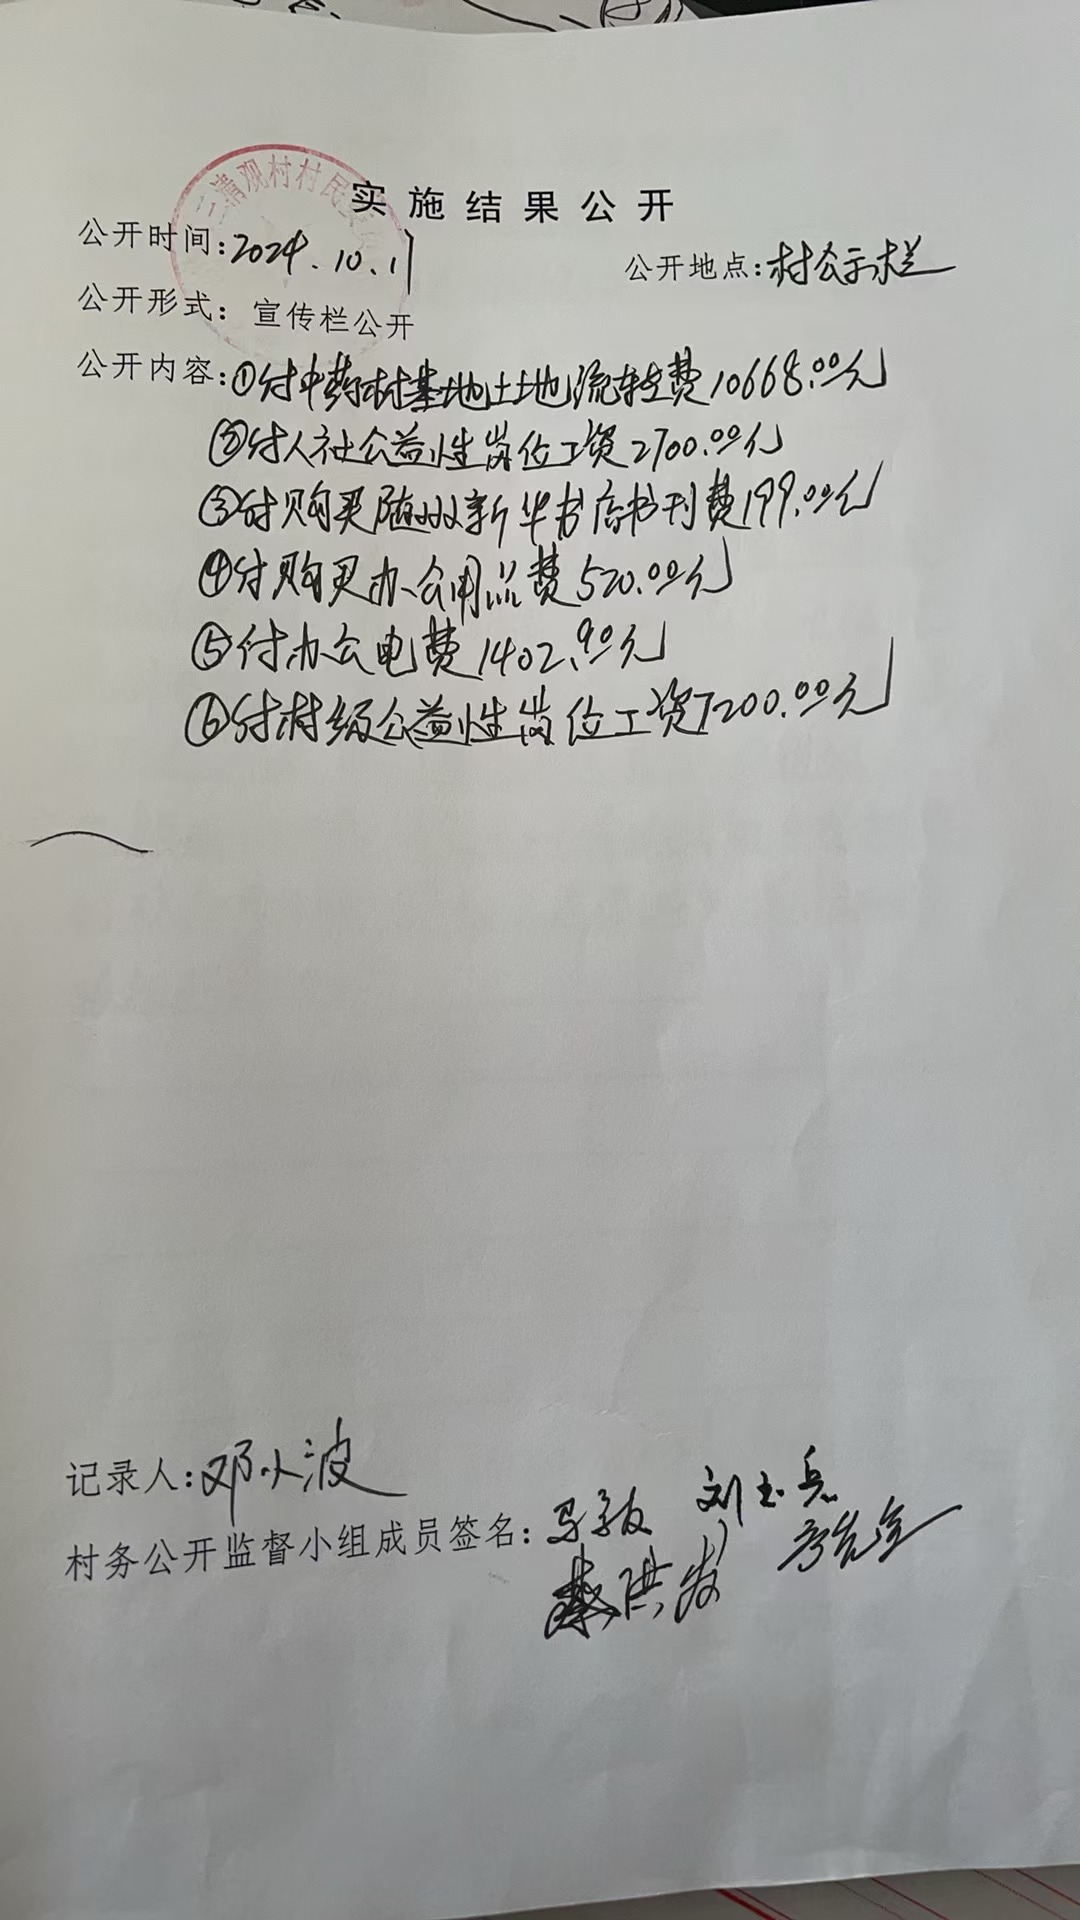 实施结果公开
三清观村村民委员
公开时间:2024.10.11
公开地点:村公示栏
公开形式:宣传栏公开
公开内容:①付中药材基地土地流转费10668.00元
②付人社公益性岗位工资2700.00元
③付购买随州新华书店书刊费199.00元
④付购买办公用品费520.00元
⑤付办公电费1402.90元
⑥付村级公益性岗位工资7200.00元
记录人:邓小波
村务公开监督小组成员签名: 刘玉兵
洪发